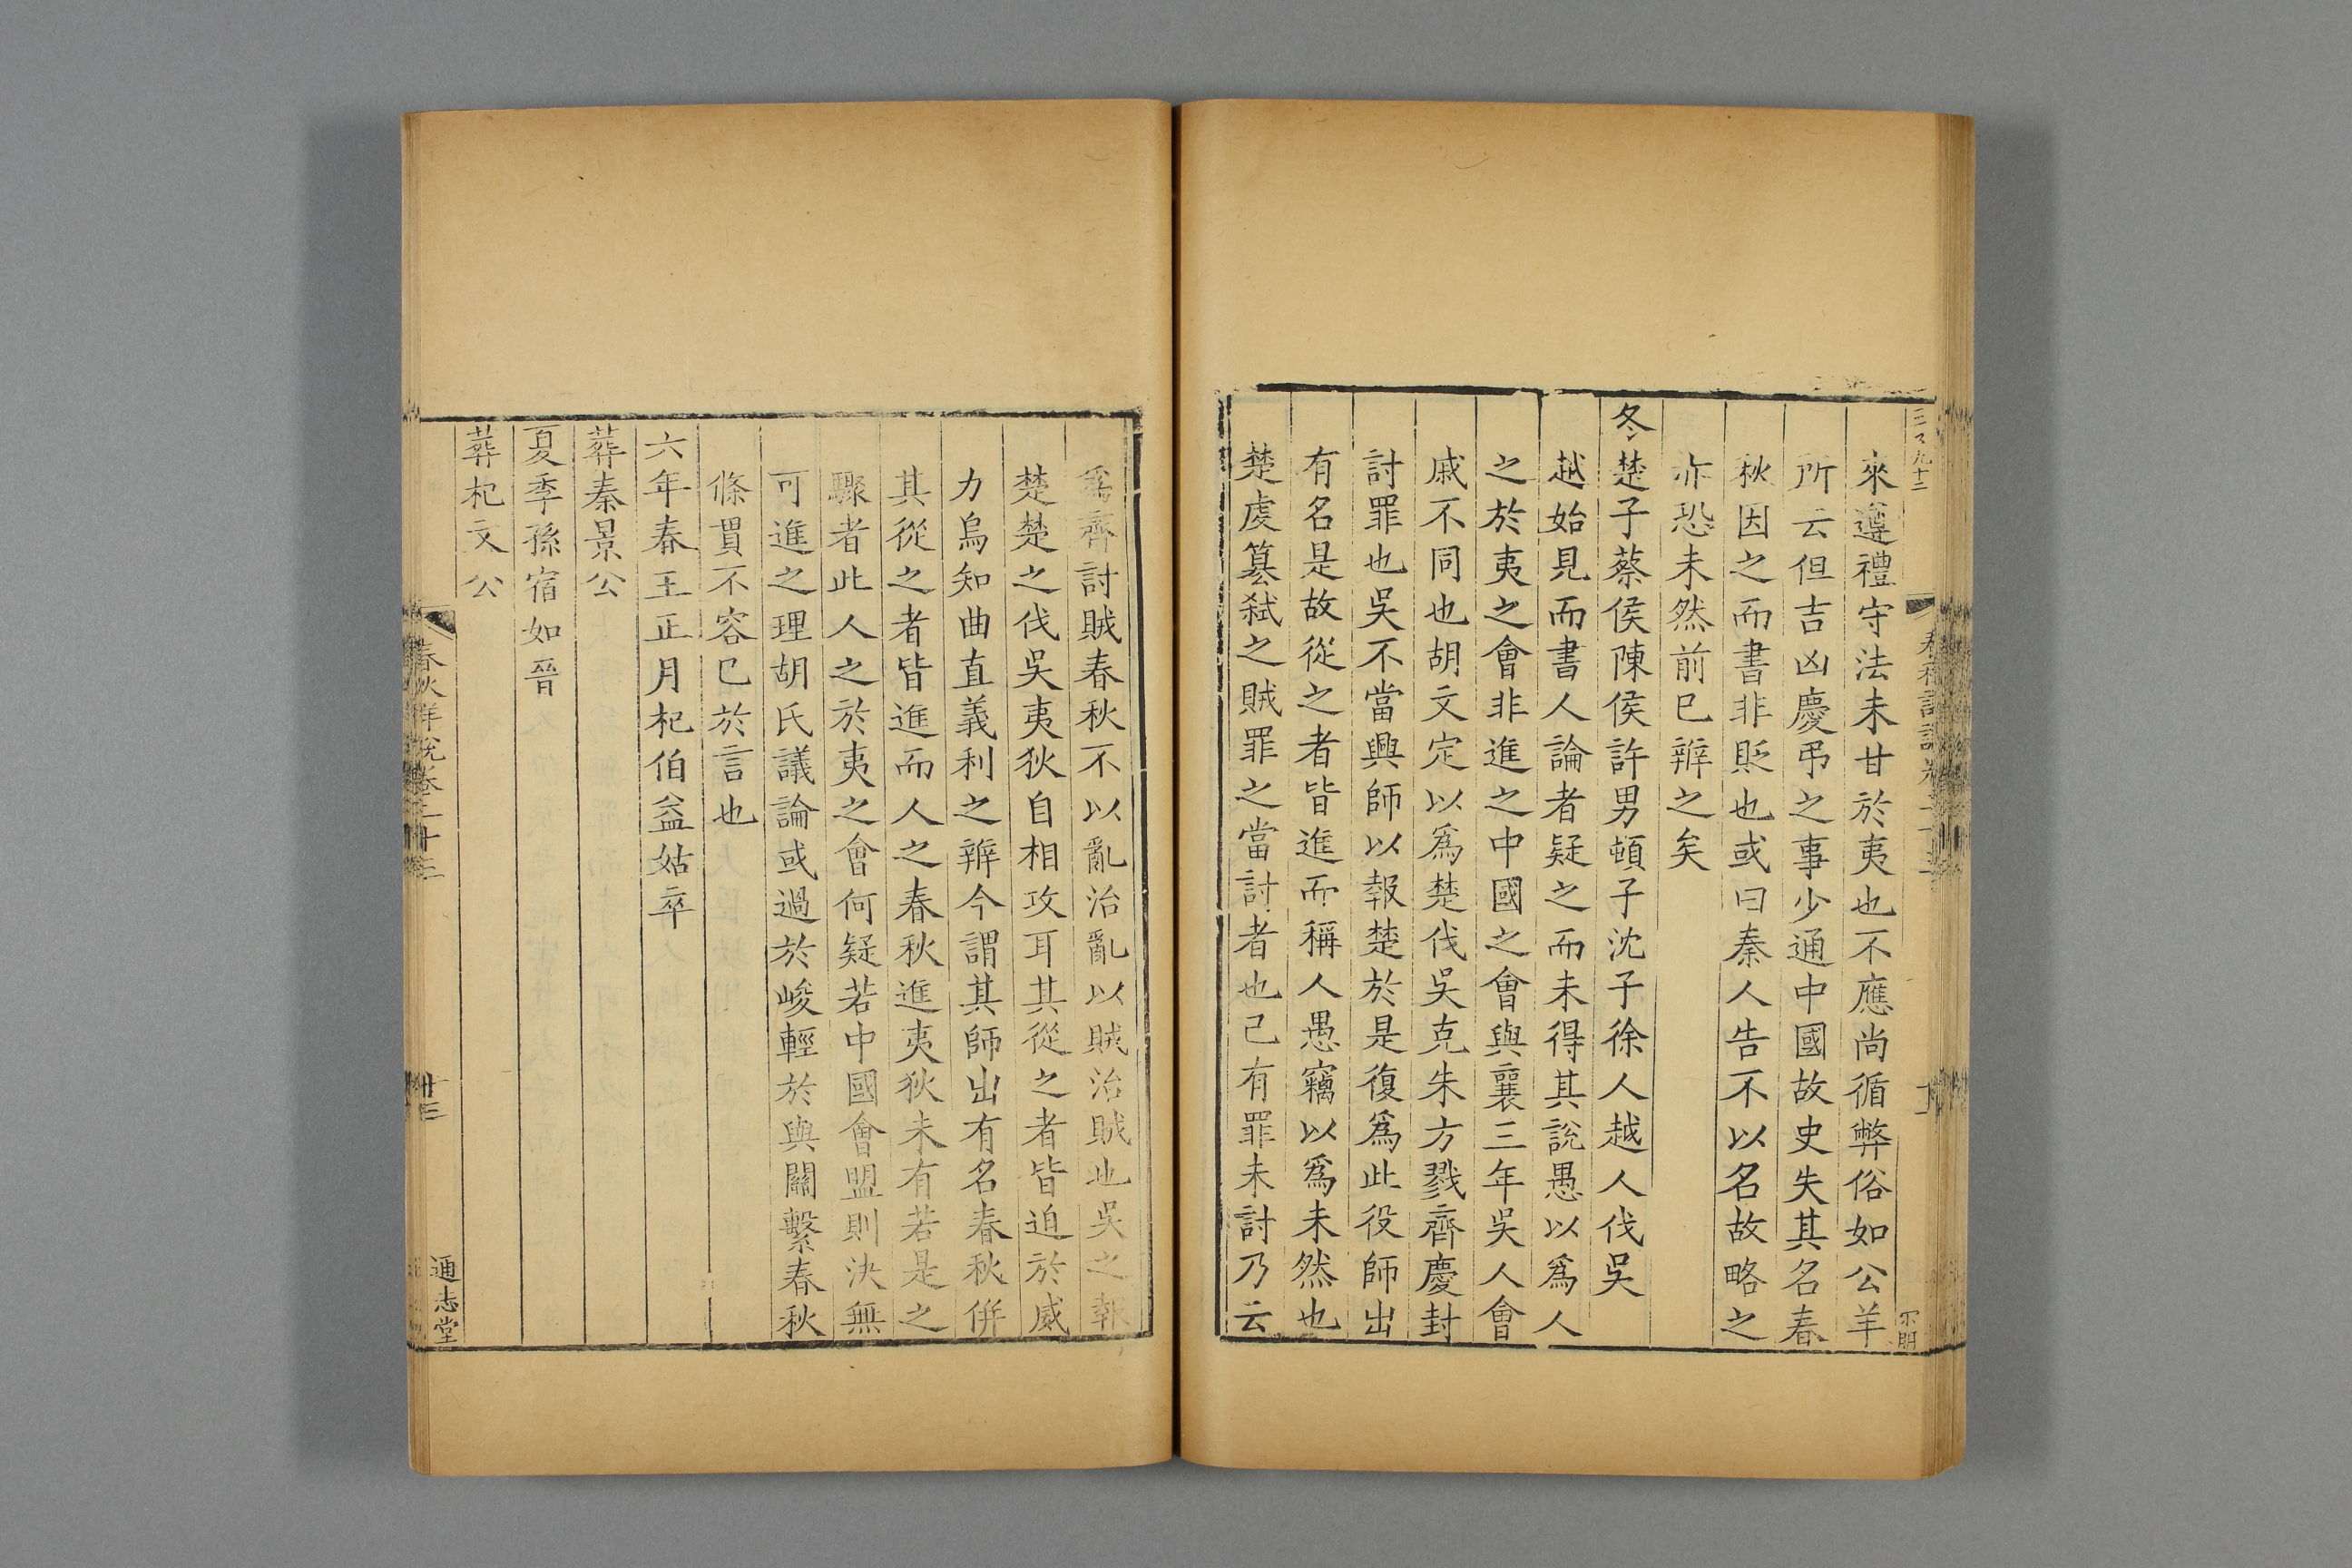 來遵禮守法未甘於夷也不應尚循弊俗如公羊
所云但吉凶慶弔之事少通中國故史失其名春
秋因之而書非貶也或曰秦人告不以名故略之
亦恐未然前已辨之矣
冬楚子蔡侯陳侯許男頓子沈子徐人越人伐吳
越始見而書人論者疑之而未得其說愚以爲人
之於夷之會非進之中國之會與襄三年吳人會
戚不同也胡文定以爲楚伐吳克朱方戮齊慶封
討罪也吳不當興師以報楚於是復爲此役師出
有名是故從之者皆進而稱人愚竊以爲未然也
楚虔簒弑之賊罪之當討者也己有罪未討乃云
爲齊討賊春秋不以亂治亂以賊治賊也吳之報
楚楚之伐吳夷狄自相攻耳其從之者皆迫於威
力烏知曲直義利之辨今謂其師出有名春秋併
其從之者皆進而人之春秋進夷狄未有若是之
驟者此人之於夷之會何疑若中國會盟則決無
可進之理胡氏議論或過於峻輕於與關繫春秋
條貫不容已於言也
六年春王正月杞伯益姑卒
葬秦景公
夏季孫宿如晉
葬杞文公
春秋詳說卷二十三
通志堂